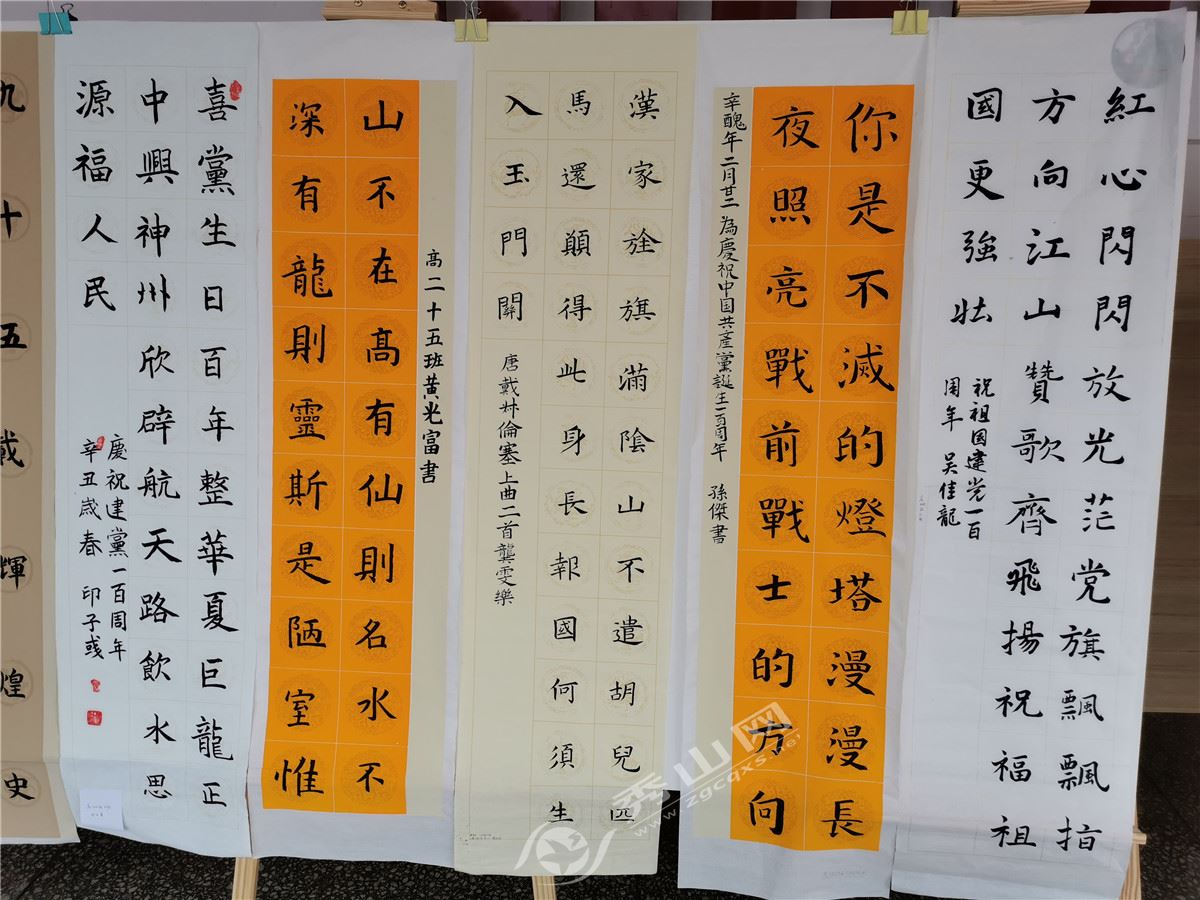 紅心閃閃放光茫党旗飄飄指
方向江山贊歌齊飛揚祝福祖
國更強壯
祝祖国建党一百
周年 吴佳龍
你是不滅的燈塔漫漫長
夜照亮戰前戰士的方向
辛醜年二月廿二為慶祝中国共產黨誕生一百周年 孫傑書
漢家旌旗滿陰山不遣胡兒匹
馬還願得此身長報國何須生
入玉門關
唐戴叔倫塞上曲二首龔雯樂
高二十五班黃光富書
山不在高有仙則名水不
深有龍則靈斯是陋室惟
喜黨生日百年整華夏巨龍正
中興神州欣辟航天路飲水思
源福人民
慶祝建黨一百周年
辛丑歲春 印子彧
九十五載輝煌史
秀山网
www.zgcqxs.net